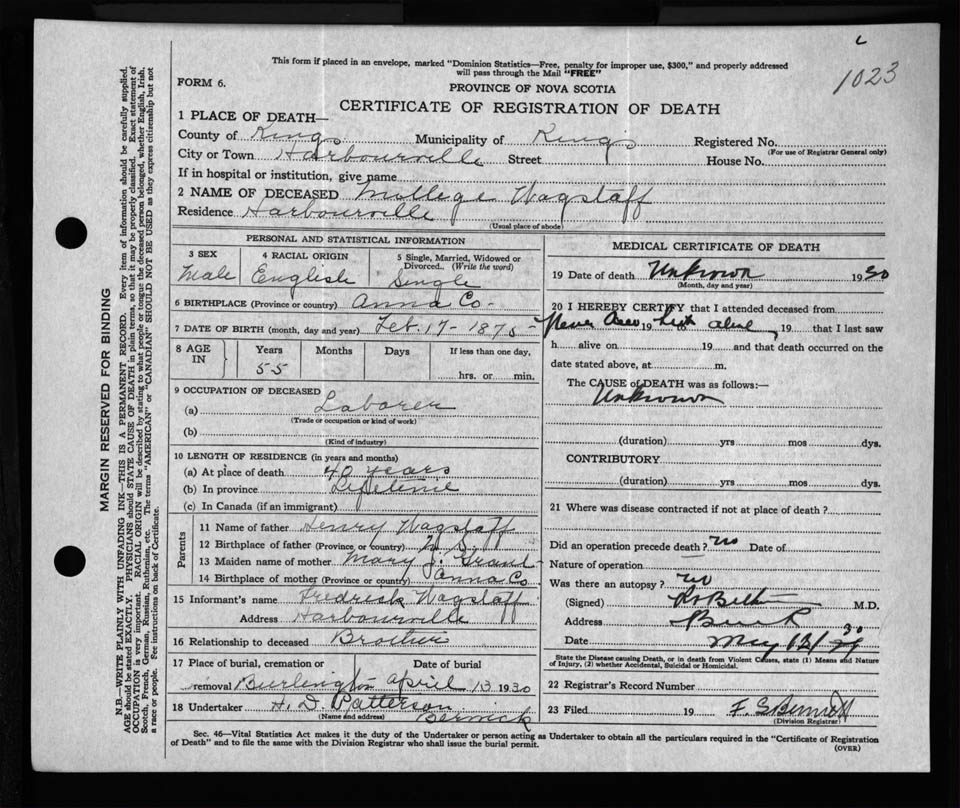 1023
This form if placed in an envelope, marked "Dominion Statistics—Free, penalty for improper use, $300," and properly addressed
will pass through the Mail "FREE"
FORM 6.
PROVINCE OF NOVA SCOTIA
CERTIFICATE OF REGISTRATION OF DEATH
1 PLACE OF DEATH—
County of Kings Municipality of Kings Registered No.
(For use of Registrar General only)
City or Town Harbourville Street House No.
If in hospital or institution, give name
2 NAME OF DECEASED Millege Wagstaff
Residence Harbourville
(Usual place of abode)
PERSONAL AND STATISTICAL INFORMATION
3 SEX 4 RACIAL ORIGIN 5 Single, Married, Widowed or
Divorced. (Write the word)
Male English Single
6 BIRTHPLACE (Province or country) Anna Co-
7 DATE OF BIRTH (month, day and year) Feb. 17- 1875-
8 AGE IN Years Months Days If less than one day,
55 hrs. or min.
9 OCCUPATION OF DECEASED
(a) Laborer
(Trade or occupation or kind of work)
(b)
(Kind of industry)
10 LENGTH OF RESIDENCE (in years and months)
(a) At place of death 40 years
(b) In province Lifetime
(c) In Canada (if an immigrant)
Parents
11 Name of father Henry Wagstaff
12 Birthplace of father (Province or country) N. S.
13 Maiden name of mother Mary J. Grant
14 Birthplace of mother (Province or country) Anna Co
15 Informant's name Fredrick Wagstaff
Address Harbourville
16 Relationship to deceased Brother
17 Place of burial, cremation or Date of burial
removal Burlington April 13 1930
18 Undertaker H. D. Patterson
(Name and address) Berwick
MEDICAL CERTIFICATE OF DEATH
19 Date of death Unknown 1930
(Month, day and year)
20 I HEREBY CERTIFY that I attended deceased from
Never saw 19 him alive, 19 that I last saw
h alive on 19 and that death occurred on the
date stated above, at m.
The CAUSE of DEATH was as follows:—
Unknown
(duration) yrs mos dys.
CONTRIBUTORY
(duration) yrs mos dys.
21 Where was disease contracted if not at place of death?
Did an operation precede death? no Date of
Nature of operation
Was there an autopsy? no
(Signed) M.D.
Address
Date May 12/30
State the Disease causing Death, or in death from Violent Causes, state (1) Means and Nature
of Injury, (2) whether Accidental, Suicidal or Homicidal.
22 Registrar's Record Number
23 Filed 19
(Division Registrar)
Sec. 46—Vital Statistics Act makes it the duty of the Undertaker or person acting as Undertaker to obtain all the particulars required in the "Certificate of Registration
of Death" and to file the same with the Division Registrar who shall issue the burial permit.
(OVER)
MARGIN RESERVED FOR BINDING
N.B.—WRITE PLAINLY WITH UNFADING INK—THIS IS A PERMANENT RECORD. Every item of information should be carefully supplied.
AGE should be stated EXACTLY. PHYSICIANS should STATE CAUSE OF DEATH in plain terms, so that it may be properly classified. Exact statement of
OCCUPATION is very important. RACIAL ORIGIN will be described by stating to what people or tongue the deceased person belonged, whether English, Irish,
Scotch, French, German, Russian, Ruthenian, etc. The terms "AMERICAN" or "CANADIAN" SHOULD NOT BE USED as they express citizenship but not
a race or people. See instructions on back of Certificate.